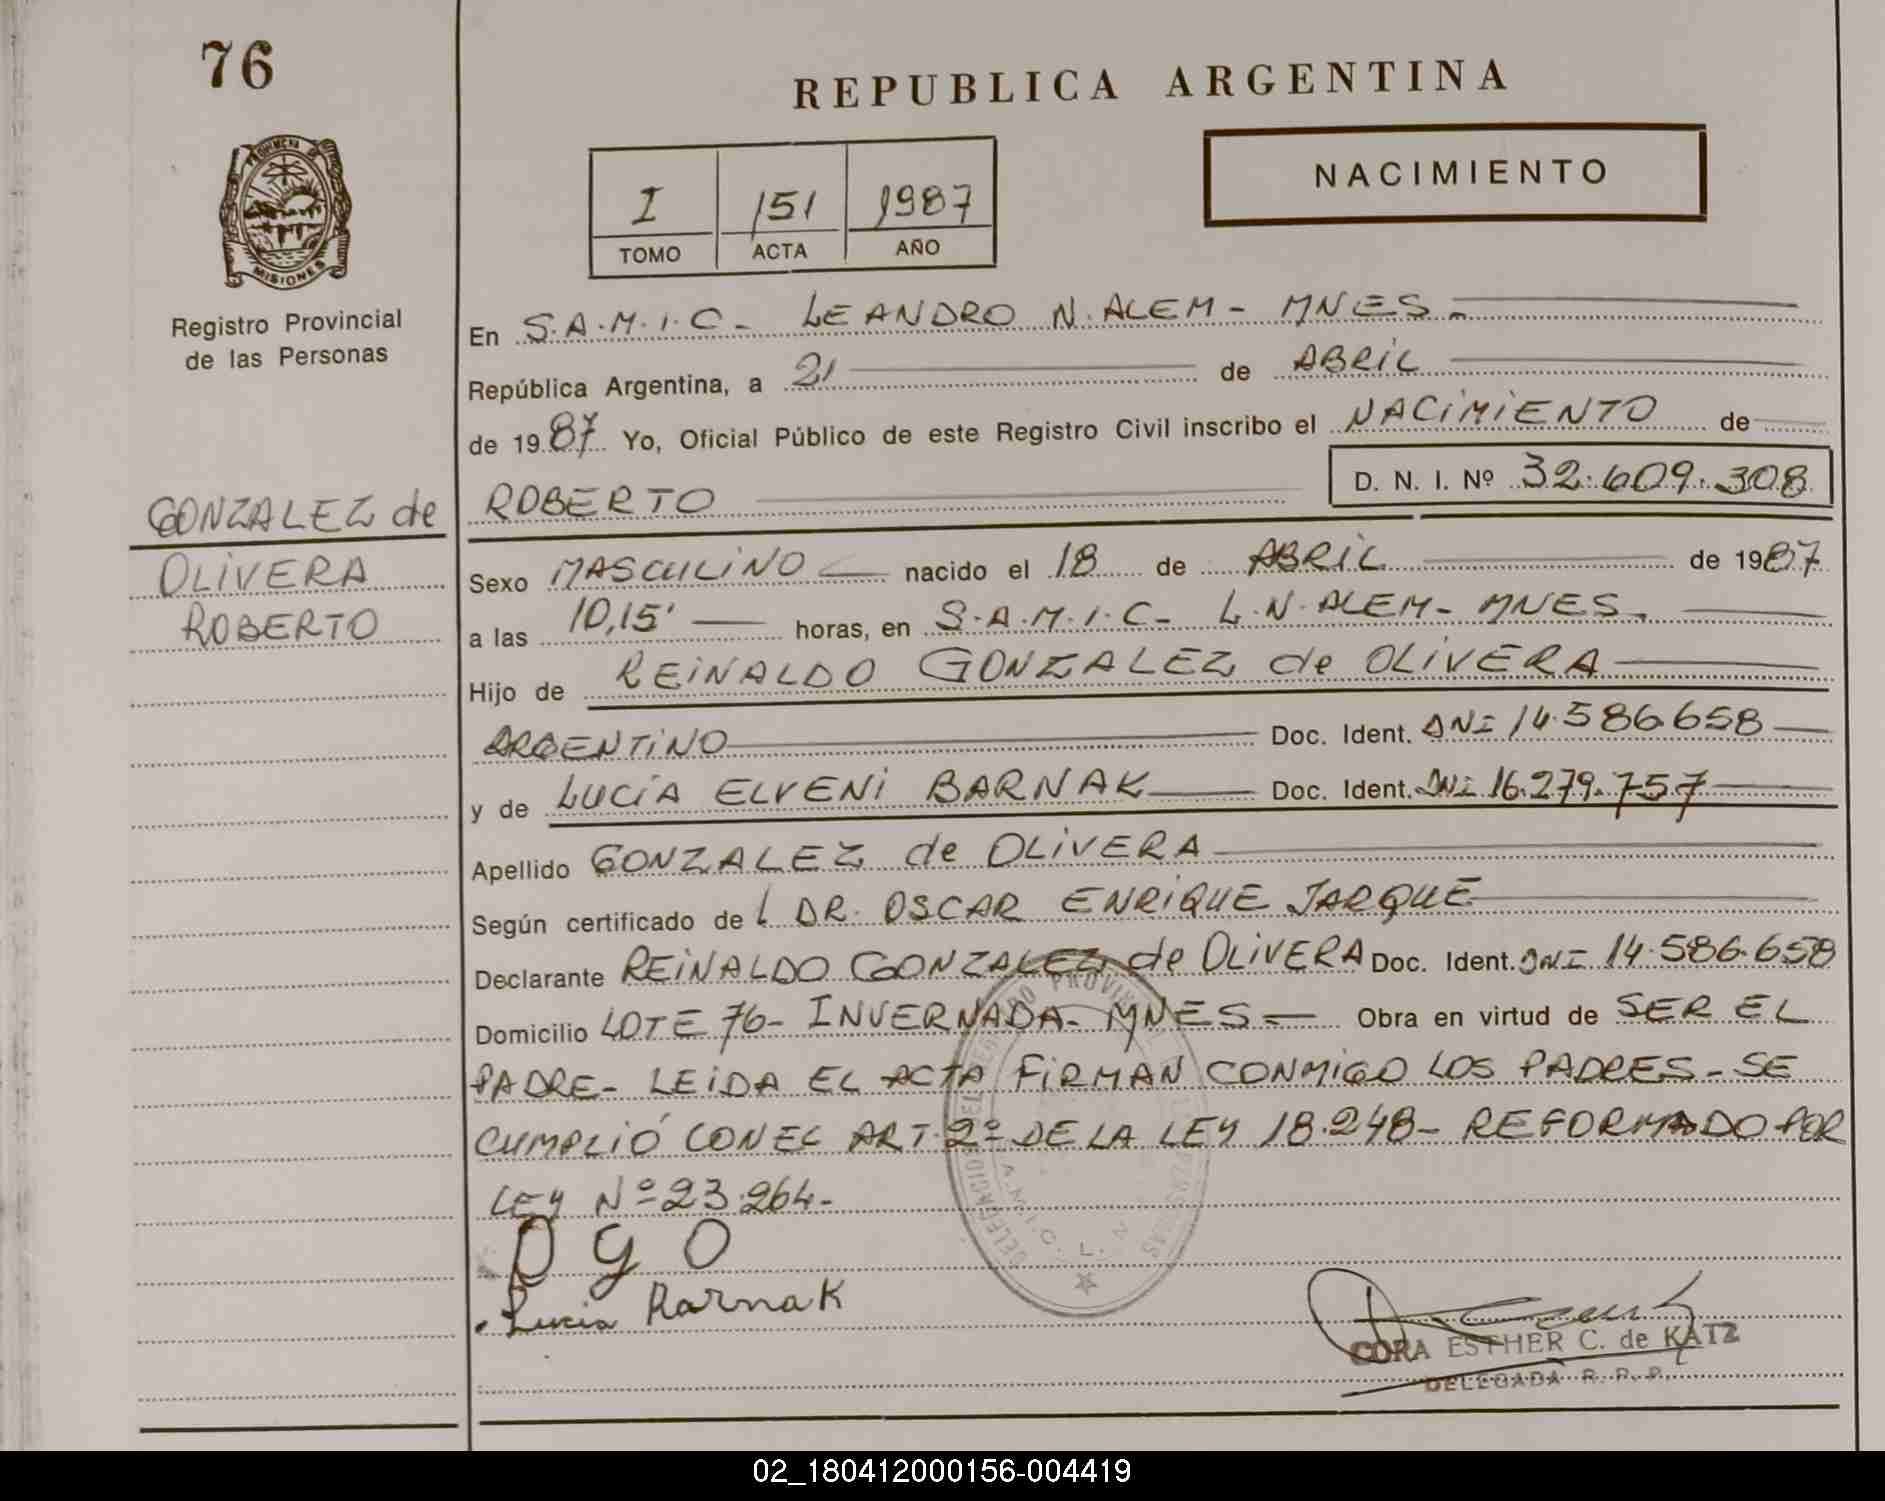 76
REPUBLICA ARGENTINA
PROVINCIA DE
MISIONES
I 151 1987
TOMO ACTA AÑO
NACIMIENTO
Registro Provincial
de las Personas
En S.A.M.I.C - LEANDRO N. ALEM - MNES.
República Argentina, a 21 de ABRIL
de 1987 Yo, Oficial Público de este Registro Civil inscribo el NACIMIENTO de
D. N. I. Nº 32.609.308
GONZALEZ de ROBERTO
OLIVERA
ROBERTO
Sexo MASCULINO nacido el 18 de ABRIL de 1987
a las 10,15' horas, en S.A.M.I.C - L.N.ALEM - MNES.
Hijo de REINALDO GONZALEZ de OLIVERA
ARGENTINO Doc. Ident. DNI 14.586.658
y de LUCIA ELVENI BARNAK Doc. Ident. DNI 16.279.757
Apellido GONZALEZ de OLIVERA
Según certificado de L DR. OSCAR ENRIQUE JARQUE
Declarante REINALDO GONZALEZ de OLIVERA Doc. Ident. DNI 14.586.658
Domicilio LOTE 76 - INVERNADA - MNES - Obra en virtud de SER EL
PADRE - LEIDA EL ACTA FIRMAN CONMIGO LOS PADRES - SE
CUMPLIÓ CON EL ART. 2º DE LA LEY 18.248 - REFORMADO POR
LEY Nº 23.264 -
DELEGACION DEL REGISTRO PROVINCIAL DE LAS PERSONAS
S.A.M.I.C. L. N.
D G O
Lucia Barnak
CORA ESTHER C. de KATZ
DELEGADA R. P. P.
02_180412000156-004419